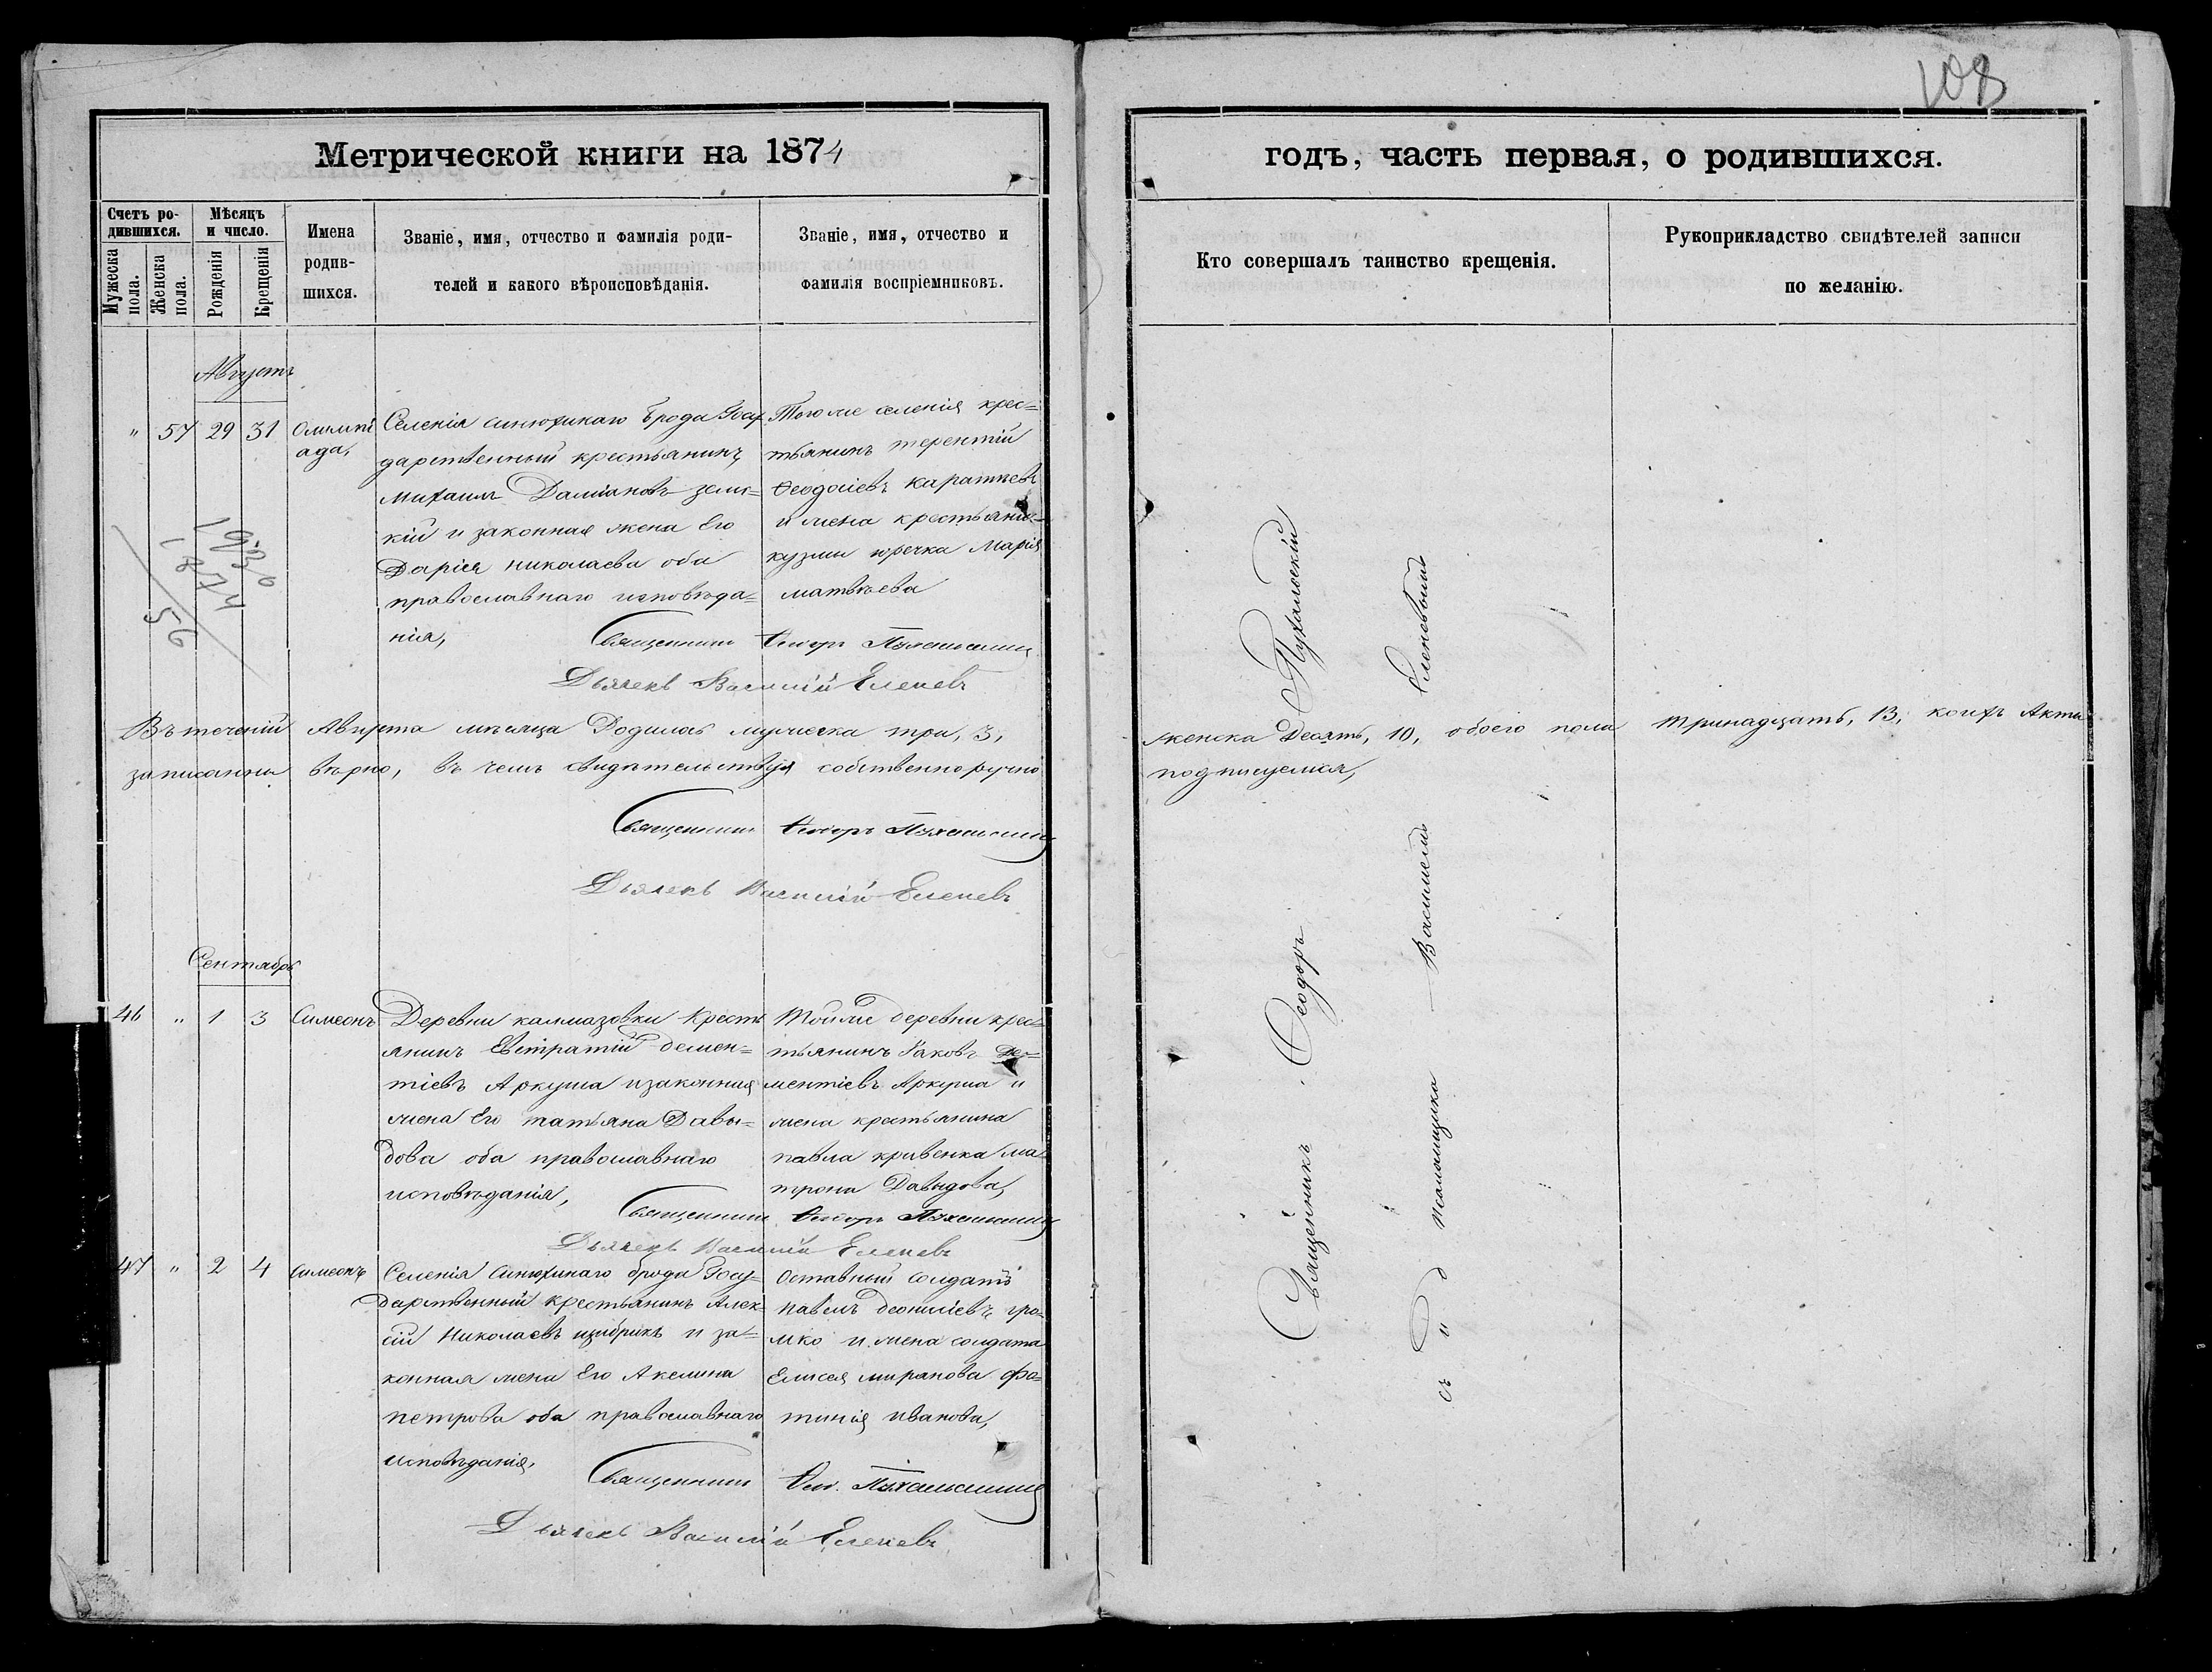 108
Метрической книги на 1874
годъ, часть первая, о родившихся.
Счетъ ро-
дившихся.
Мужеска пола.
Женска пола.
Мѣсяцъ
и число.
Рожденія
Крещенія
Имена
родив-
шихся.
Званіе, имя, отчество и фамилія роди-
телей и какого вѣроисповѣданія.
Званіе, имя, отчество и
фамилія воспріемниковъ.
Кто совершалъ таинство крещенія.
Рукоприкладство свидѣтелей записи
по желанію.
Августъ
" 57 29 31
Олимпі
ада,
Селенія Синюхинаго брода Госу
дарственный крестьянинъ
Михаилъ Даміановъ
кій и законная жена Его
Дарія николаева оба
православнаго исповѣда=
нія,
Тогоже селенія крес=
тьянинъ терентій
Ѳеодосіевъ
и жена крестьянина
кузмы юречка Марія
матвѣева
Священникъ Ѳеодоръ Пухальскій
Дьячекъ Василій Еленевъ
1874
56
Въ теченіи Августа мѣсяца Родилось мужеска три, 3,
женска Десять, 10, обоего пола тринадцать, 13, коихъ Акты
записанны вѣрно, въ чемъ свидѣтельствуя собственноручно
подписуемся,
Священникъ Ѳеодоръ Пухальскій
Дьячекъ Василій Еленевъ
Сентябрь
46 " 1 3
Симеонъ
Деревни калмазовки Кресть
янинъ Евстратій демен=
тіевъ Аркуша и законная
жена Его татьяна Давы=
дова оба православнаго
исповѣданія,
Тойже деревни крес=
тьянинъ Іаковъ Де=
ментіевъ Аркуша и
жена крестьянина
павла кривенка ма
трона Давыдова,
Священникъ Ѳеодоръ Пухальскій
Дьячекъ Василій Еленевъ
47 " 2 4
Симеонъ
Селенія Синюхинаго брода Госу=
дарственный крестьянинъ Алек
сій Николаевъ и за=
конная жена Его Акелина
петрова оба православнаго
исповѣданія,
Отставный солдатъ
павелъ леонтіевъ гро=
мко и жена солдата
Елисея миранова фо=
тинія иванова,
Священникъ Ѳеод. Пухальскій
Дьячекъ Василій Еленевъ
Священникъ Ѳеодоръ Пухальскій
съ и д псаломщика Василіемъ Еленевымъ